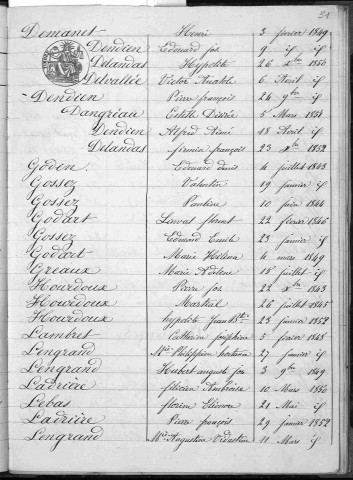 31
Demanet Henri 3 fevrier 1849
Dendien Edouard jos 9 if if
Delandas Hypolite 26 xbre 1850
Delvallée Victor Anatole 6 Avril if
Dendien Pierre françois 24 9bre if
Dangréau Estelle Désirée 5 Mars 1851
Dendien Alfred Aimé 18 Avril if
Delandas firmin françois 23 xbre 1852
Goden Edouard denis 4 juillet 1843
Gossez Valentin 19 janvier if
Gossez Pauline 10 juin 1844
Godart florent 22 fevrier 1846
Gossez Edouard Emile 23 janvier if
Godart Marie 4 mars 1849
Gréaux Marie 15 juillet if
Hourdoux Pierre jos 22 xbre 1843
Hourdoux Martial 26 juillet 1845
Hourdoux hypolite Jean Bte 23 janvier 1852
Lambret Catherine joséphine 5 fevrier 1848
Lengrand Mie Philippine hortense 27 janvier if
Lengrand Hubert auguste jos 3 9bre 1849
Ladrière félicien Ambroise 10 Mars 1850
Lebas florine Eléonore 21 Mai if
Ladrière Pierre françois 29 janvier 1852
Lengrand Mie Augustine 11 Mars if